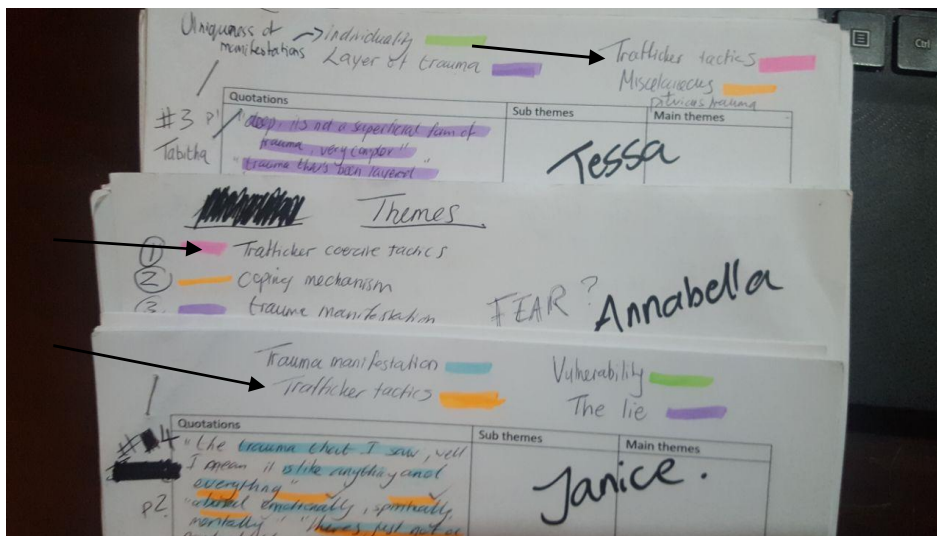 Uniqueness of manifestations → individuality
Layer of trauma
Trafficker tactics
Miscelaneous
trauma
Quotations
Sub themes
Main themes
#3 p1
Tabitha
"deep, its not a superficial form of
trauma, very complex"
"trauma that's been layered"
Tessa
Themes
1 Trafficker coercive tactics
2 coping mechanism
3. trauma manifestation
FEAR?
Annabella
Trauma manifestation
Trafficker tactics
Vulnerability
The lie
Quotations
Sub themes
Main themes
4
p2
"the trauma that I saw, well
I mean it is like anything and
everything"
"abused emotionally, spiritually,
mentally" "theres just not
Janice.
Ctrl